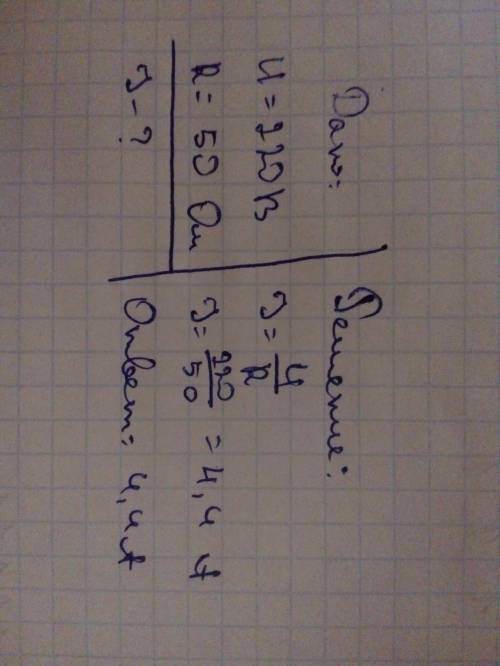 Дано:
U = 220 В
R = 50 Ом
I - ?
Решение:
I = U/R
I = 220/50 = 4,4 А
Ответ: 4,4 А